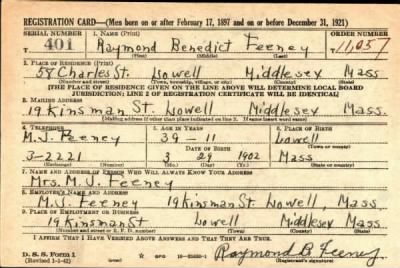 REGISTRATION CARD—(Men born on or after February 17, 1897 and on or before December 31, 1921)
SERIAL NUMBER 1. NAME (Print) ORDER NUMBER
T 401 Raymond Benedict Feeney T 11,057
(First) (Middle) (Last)
2. PLACE OF RESIDENCE (Print)
58 Charles St. Lowell Middlesex Mass
(Number and street) (Town, township, village, or city) (County) (State)
[THE PLACE OF RESIDENCE GIVEN ON THE LINE ABOVE WILL DETERMINE LOCAL BOARD
JURISDICTION; LINE 2 OF REGISTRATION CERTIFICATE WILL BE IDENTICAL]
3. MAILING ADDRESS
19 Kinsman St. Lowell Middlesex Mass.
[Mailing address if other than place indicated on line 2. If same insert word same]
4. TELEPHONE 5. AGE IN YEARS 6. PLACE OF BIRTH
M. J. Feeney 39 - 11 Lowell
DATE OF BIRTH (Town or county)
3-2221 3 29 1902 Mass
(Mo.) (Day) (Yr.) (State or country)
7. NAME AND ADDRESS OF PERSON WHO WILL ALWAYS KNOW YOUR ADDRESS
Mrs M. J. Feeney
8. EMPLOYER'S NAME AND ADDRESS
M. J. Feeney 19 Kinsman St. Lowell, Mass.
9. PLACE OF EMPLOYMENT OR BUSINESS
19 Kinsman St Lowell Middlesex Mass
(Number and street or R. F. D. number) (Town) (County) (State)
I AFFIRM THAT I HAVE VERIFIED ABOVE ANSWERS AND THAT THEY ARE TRUE.
D. S. S. Form 1
(Revised 1-1-42) GPO Raymond B Feeney
(Registrant's signature)